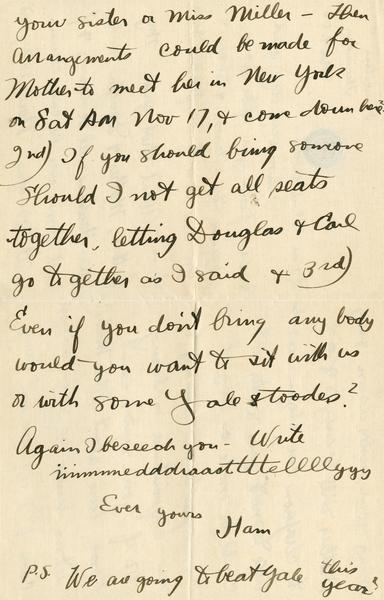 your sister or Miss Miller – Then
arrangements could be made for
Mother to meet her in New York
on Sat Am Nov 17, & come down here.
2nd) If you should bring someone
should I not get all seats
together, letting Douglas & Carl
go together as I said & 3rd)
Even if you don't bring any body
would you want to sit with us
or with some Yale stoodes?
Again I beseech you – Write
iimmmedddiaaattttelllllyyy
Ever yours
Ham
P.S. We are going to beat Yale this
year?